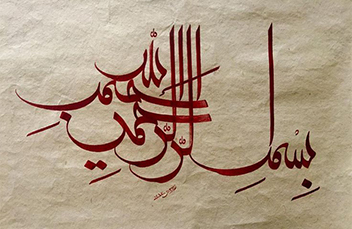 بِسْمِ الله الرحمن الرحيم